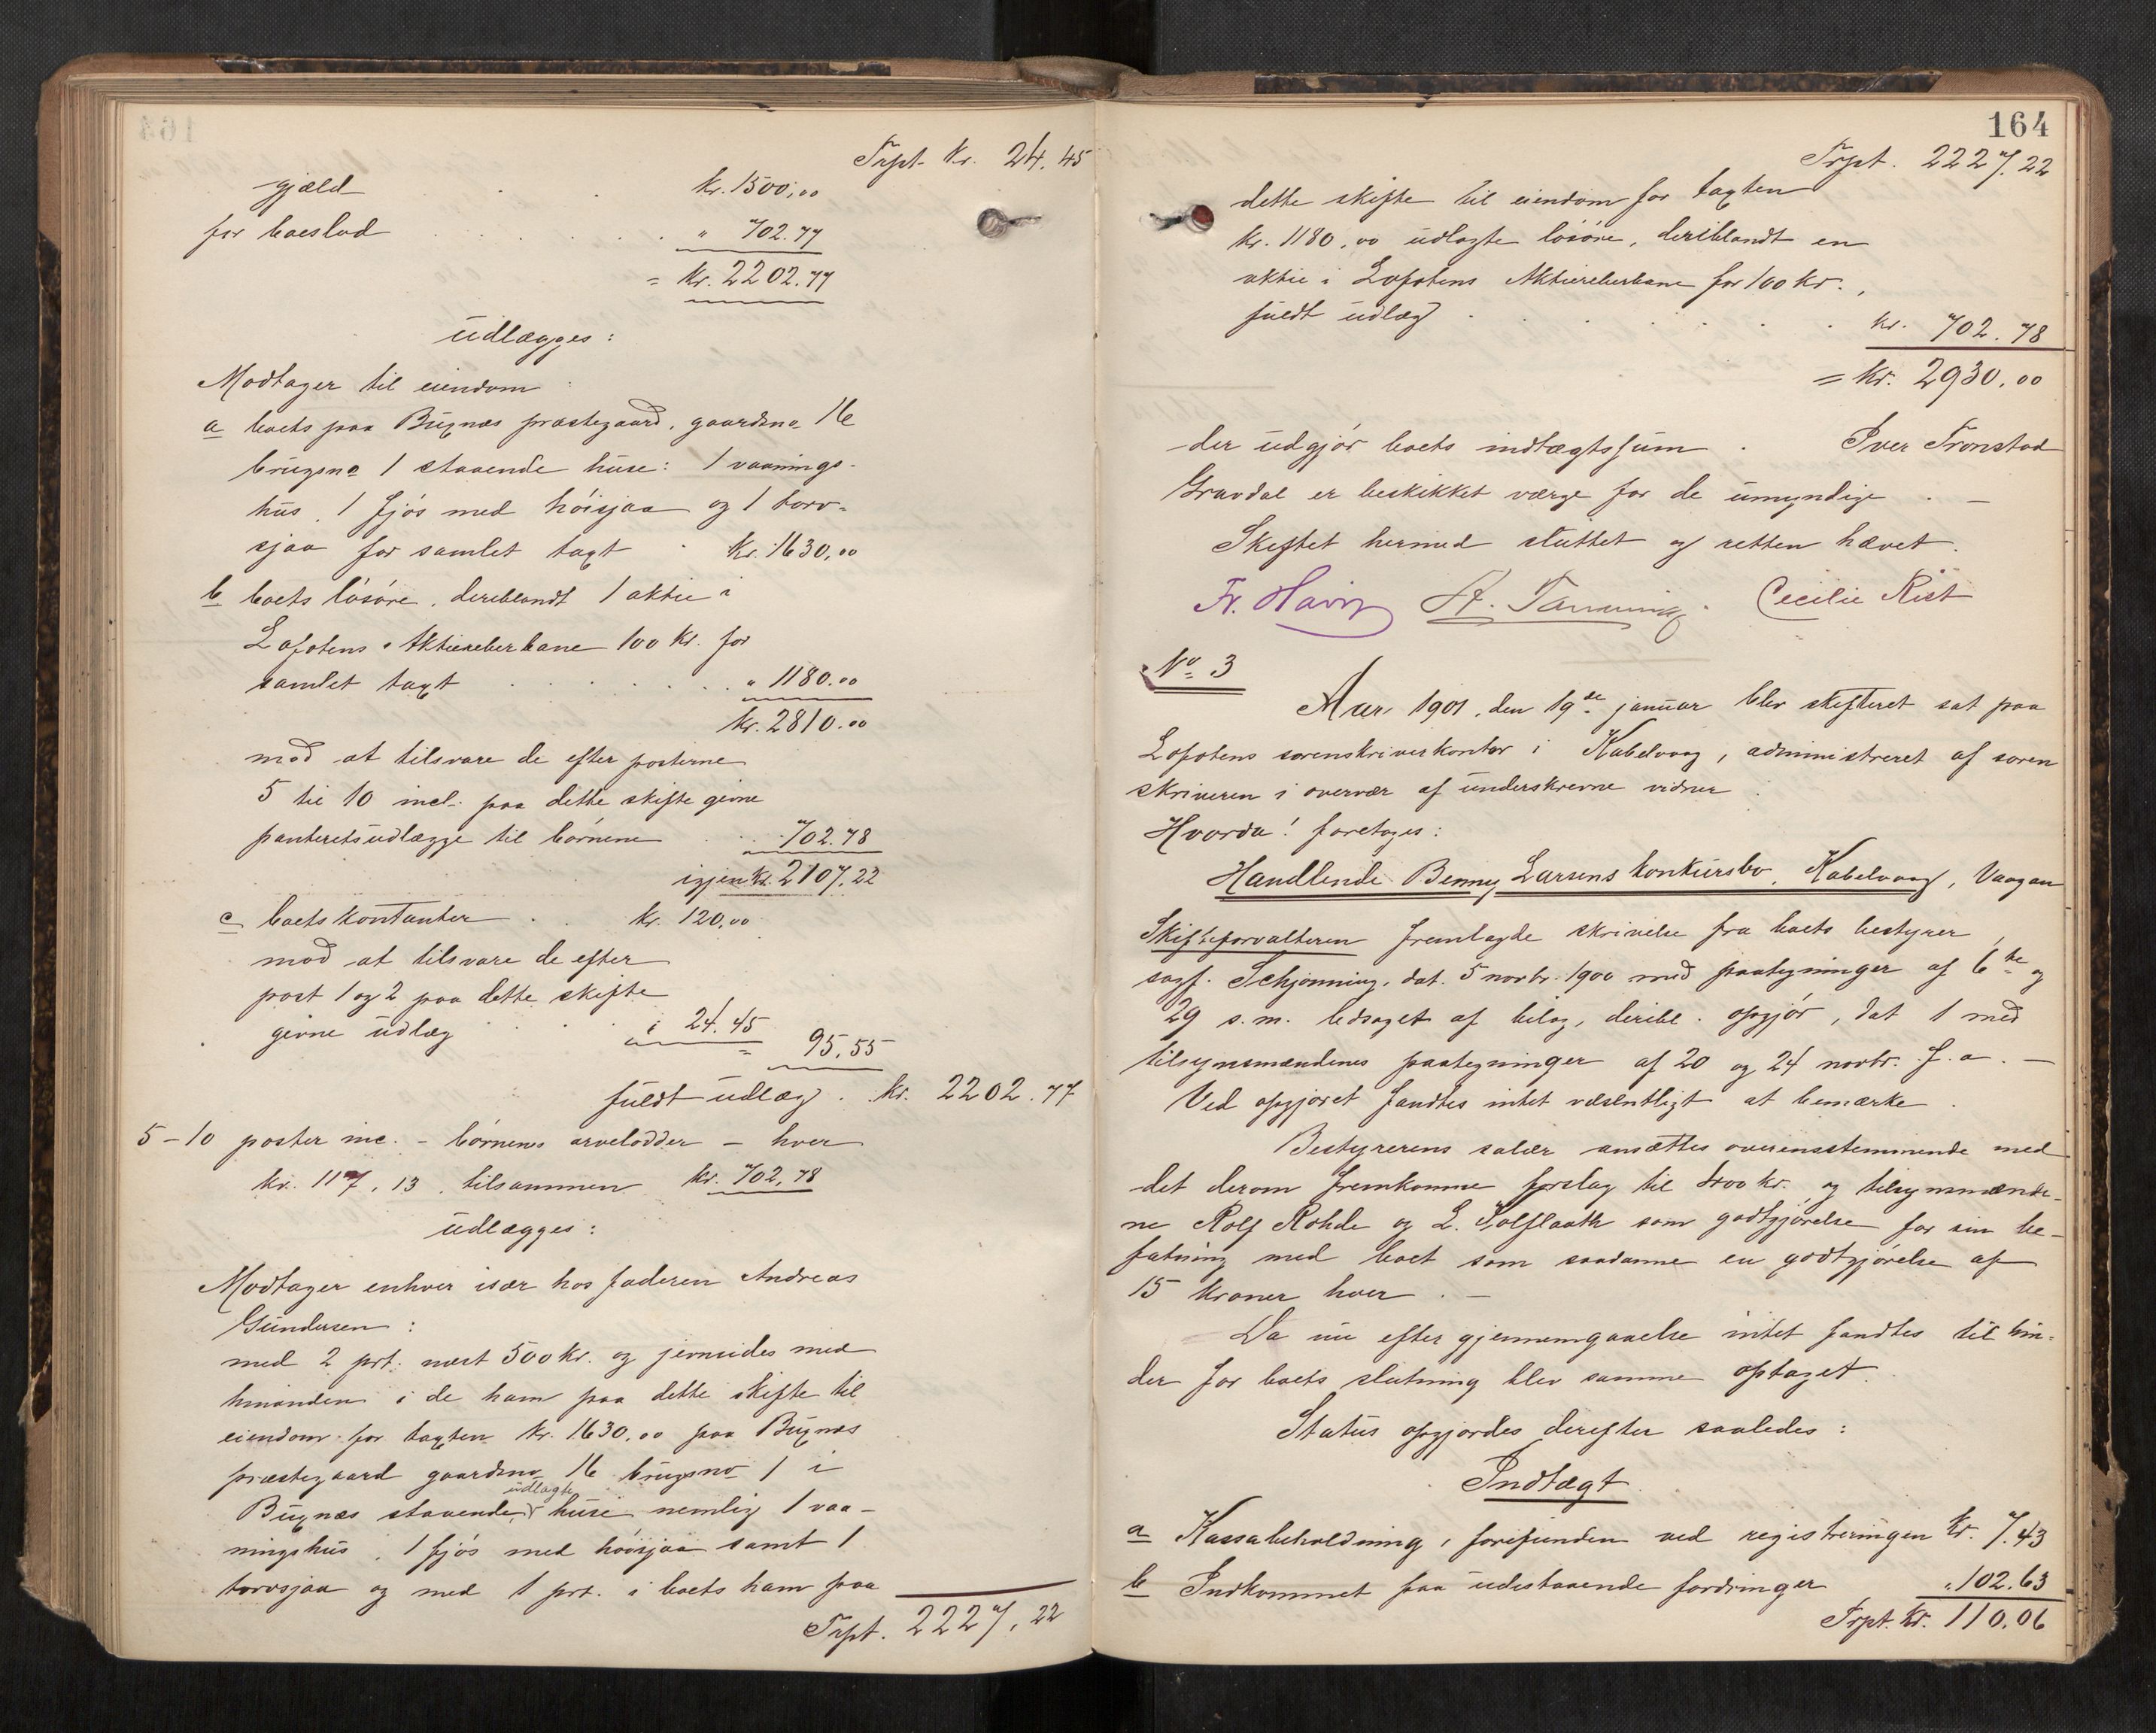 Trpt. Kr. 24.45
gjæld . . kr. 1500,00
for boeslod . . . . . . " 702.77
= Kr. 2202.77
udlægges:
Modtager til eiendom :
a boets paa Buxnæs præstegaard, gaardsno 16
brugsno 1 staaende huse: 1 vaanings-
hus, 1 fjøs med høisjaa og 1 torv-
sjaa for samlet taxt . Kr. 1630,00
b boets løsøre, deriblandt 1 aktie i
Lofotens Aktiereberbane 100 Kr. for
samlet taxt . . . . . . " 1180.00
Kr. 2810.00
mod at tilsvare de efter posterne
5 til 10 incl. paa dette skifte givne
panteretsudlægge til børnene . . 702.78
igjen Kr. 2107,22
c boets kontanter . . kr. 120,00
mod at tilsvare de efter
post 1 og 2 paa dette skifte
givne udlæg . . . . " 24.45
= 95,55
fuldt udlæg . kr. 2202.77
5-10 poster inc. - børnenes arvelodder - hver
kr. 117,13, tilsammen kr. 702,78
udlægges:
Modtager enhver især hos faderen Andreas
Gundersen :
med 2 prt. næst 500 Kr. og jevnsides med
hinanden i de ham paa dette skifte til
eiendom for taxten Kr. 1630,00 paa Buxnæs
præstegaard gaardsno 16 brugsno 1 i
udlagte
Buxnæs staaende huse nemlig 1 vaa-
ningshus, 1 fjøs med høisjaa samt 1
torvsjaa og med 1 prt. i boets ham paa
Trpt. 2227,22
164
Trpt. 2227.22
dette skifte til eiendom for taxten
kr. 1180,00 udlagte løsøre, deriblandt en
aktie i Lofotens Aktiereberbane for 100 Kr.,
fuldt udlæg . . . . . . . kr. 702.78
= Kr. 2930,00
der udgjør boets indtægtssum . Iver Tronstad
Gravdal er beskikket værge for de umyndige . -
Skiftet hermed sluttet og retten hævet.
Fr. Havig A. Tanning. Cecilie Rist
No 3
Aar 1901, den 19de januar blev skifteret sat paa
Lofotens sorenskriverkontor i Kabelvaag, administreret af soren
skriveren i overvær af underskrevne vidner .
Hvorda! foretoges:
Handlende Benny Larsens konkursbo, Kabelvaag, Vaagan
Skifteforvalteren fremlagde skrivelse fra boets bestyrer,
sagf. Schjønning, dat. 5 novbr. 1900 med paategninger af 6te og
29 s. m. ledsaget af bilag, deribl. opgjør, dat 1 med
tilsynsmændenes paategninger af 20 og 24 novbr. f. a. -
Ved opgjøret fandtes intet væsentligt at bemærke .
Bestyrerens salær ansættes overensstemmende med
det derom fremkomne forslag til 400 kr. og tilsynsmænde-
ne Rolf Rohde og L. Solflaath som godtgjørelse for sin be-
fatning med boet som saadanne en godtgjørelse af
15 kroner hver . -
Da nu efter gjennemgaaelse intet fandtes til hin-
der for boets slutning blev samme optaget.
Status opgjordes derefter saaledes :
Indtægt
a Kassabeholdning, forefunden ved registreringen Kr. 7.43
b Indkommet paa udestaaende fordringer " 102.63
Trpt. Kr. 110,06